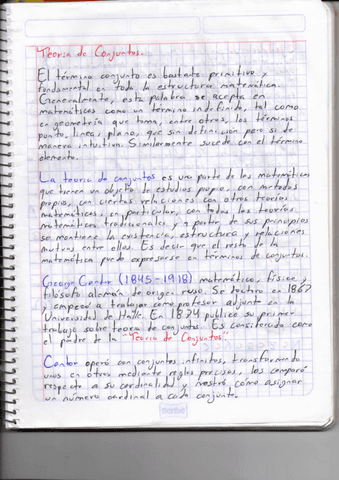 Teoria de Conjuntos.
El término conjunto es bastante primitivo y
fundamental en toda la estructura matemática.
Generalmente, esta palabra se acepta en
matemáticas como un término indefinido, tal como
en geometría que toma, entre otros, los términos
punto, linea, plano, que sin definición pero si de
manera intuitiva. Similarmente sucede con el término
elemento.
La teoria de conjuntos es una parte de las matemáticas
que tienen un objetivo de estudios propio, con métodos
propios, con ciertas relaciones con otros teorías
matemáticas, en particular, con todas las teorías
matemáticas tradicionales y a partir de sus principios
se mantiene la existencia, estructura y relaciones
mutuas entre ellos. Es decir que el resto de la
matemática puede expresarse en términos de conjuntos.
George Cantor (1845-1918) matemático, físico y
filósofo alemán de origen ruso. Se doctoro en 1867
y empezó a trabajar como profesor adjunto en la
Universidad de Halle. En 1874 publico su primer
trabajo sobre teoria de conjuntos. Es considerado como
el padre de la "Teoria de Conjuntos"
Cantor operó con conjuntos infinitos, transformando
unos en otros mediante reglas precisas, los comparó
respecto a su cardinalidad y mostró, cómo asignar
un número cardinal a cada conjunto.
norma